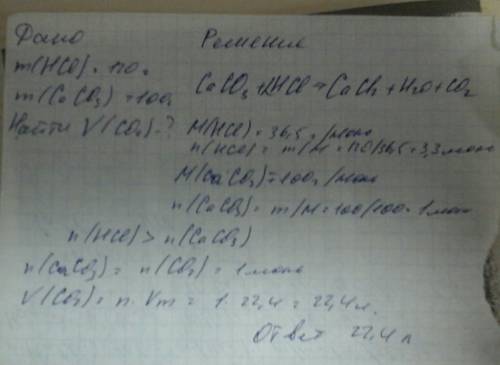 Дано Решение
m(HCl) = 120г
m(CaCO3) = 100г CaCO3 + 2HCl = CaCl2 + H2O + CO2
Найти V(CO2) - ?
M(HCl) = 36,5 г/моль
n(HCl) = m/M = 120/36,5 = 3,3 моль
M(CaCO3) = 100г/моль
n(CaCO3) = m/M = 100/100 = 1 моль
n(HCl) > n(CaCO3)
n(CaCO3) = n(CO2) = 1 моль
V(CO2) = n · Vm = 1 · 22,4 = 22,4 л
Ответ 22,4 л